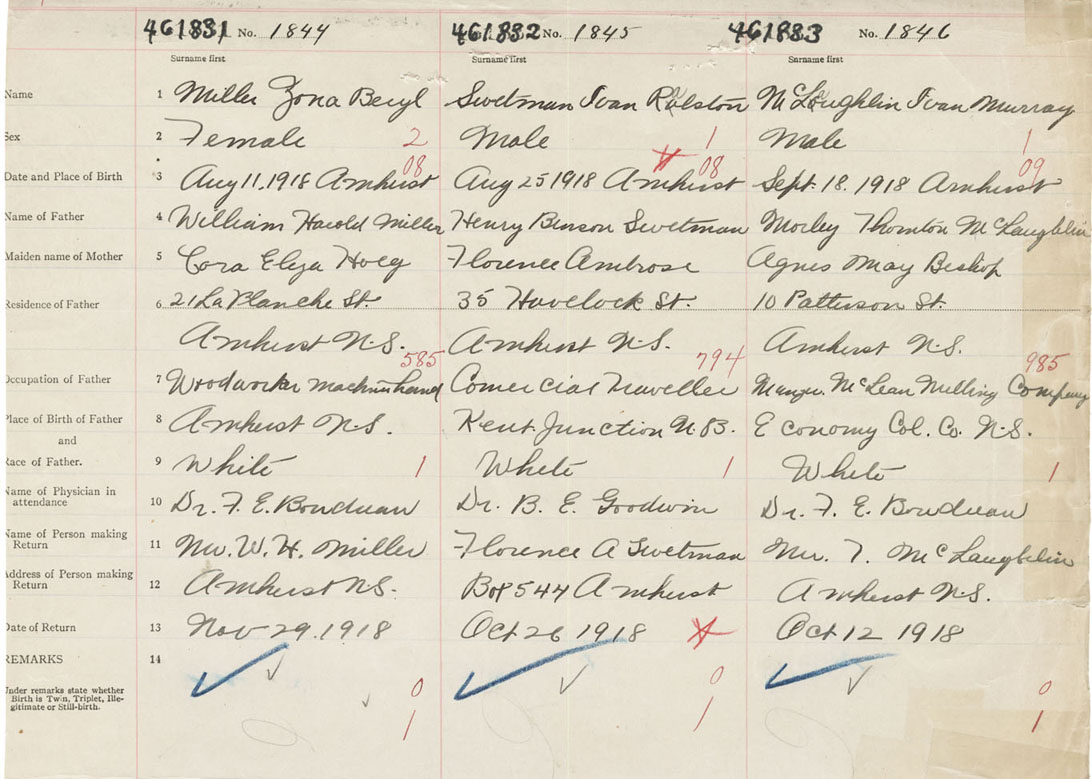 461831 No. 1844 461832 No. 1845 461833 No. 1846
Surname first Surname first Surname first
Name 1 Miller Zona Beryl Swetman Ivan Ralston McLaughlin Ivan Murray
Sex 2 Female 2 Male 1 Male 1
08 08 09
Date and Place of Birth 3 Aug 11, 1918 Amherst Aug 25 1918 Amherst Sept. 18. 1918 Amherst
Name of Father 4 William Harold Miller Henry Benson Swetman Morley Thornton McLaughlin
Maiden name of Mother 5 Cora Eliza Hoeg Florence Ambrose Agnes May Bishop
Residence of Father 6 21 La Planche St. 35 Havelock St. 10 Patterson St.
Amherst N.S. Amherst N.S. Amherst N.S.
585 794 985
Occupation of Father 7 Woodworker machinehand Comercial Traveller McLean Milling Company
Place of Birth of Father 8 Amherst N.S. Kent Junction N.B. Economy Col. Co. N.S.
and
Race of Father. 9 White 1 White 1 White 1
Name of Physician in
attendance 10 Dr. F. E. Boudreau Dr. B. E. Goodwin Dr. F. E. Boudreau
Name of Person making
Return 11 W. H. Miller Florence A Swetman T. McLaughlin
Address of Person making
Return 12 Amherst N.S. Box 544 Amherst Amherst N.S.
Date of Return 13 Nov 29. 1918 Oct 26 1918 Oct 12 1918
REMARKS 14
Under remarks state whether
Birth is Twin, Triplet, Ille-
gitimate or Still-birth.
0 0 0
1 1 1